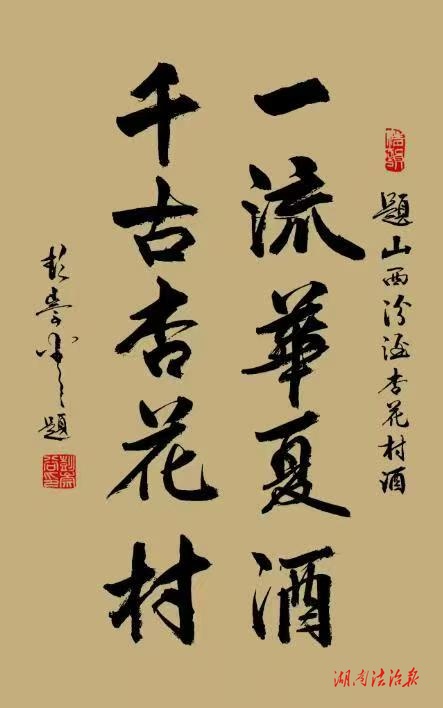 题山西汾酒杏花村酒
一流華夏酒
千古杏花村
彭崇谷题
湖南法治报